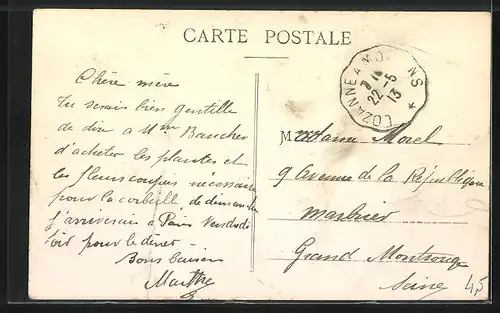 CARTE POSTALE
LOZANNE A MO
22-5
13
Chère mère
Tu serais bien gentille
de dire à Mme Baucher
d'acheter les plantes et
les fleurs coupées nécessaires
pour la corbeille de dimanche
j'arriverai à Paris Vendredi
soir pour le dîner -
Bons baisers
Marthe
Madame Morel
9 Avenue de la République
Grand Montrouge
Seine
45